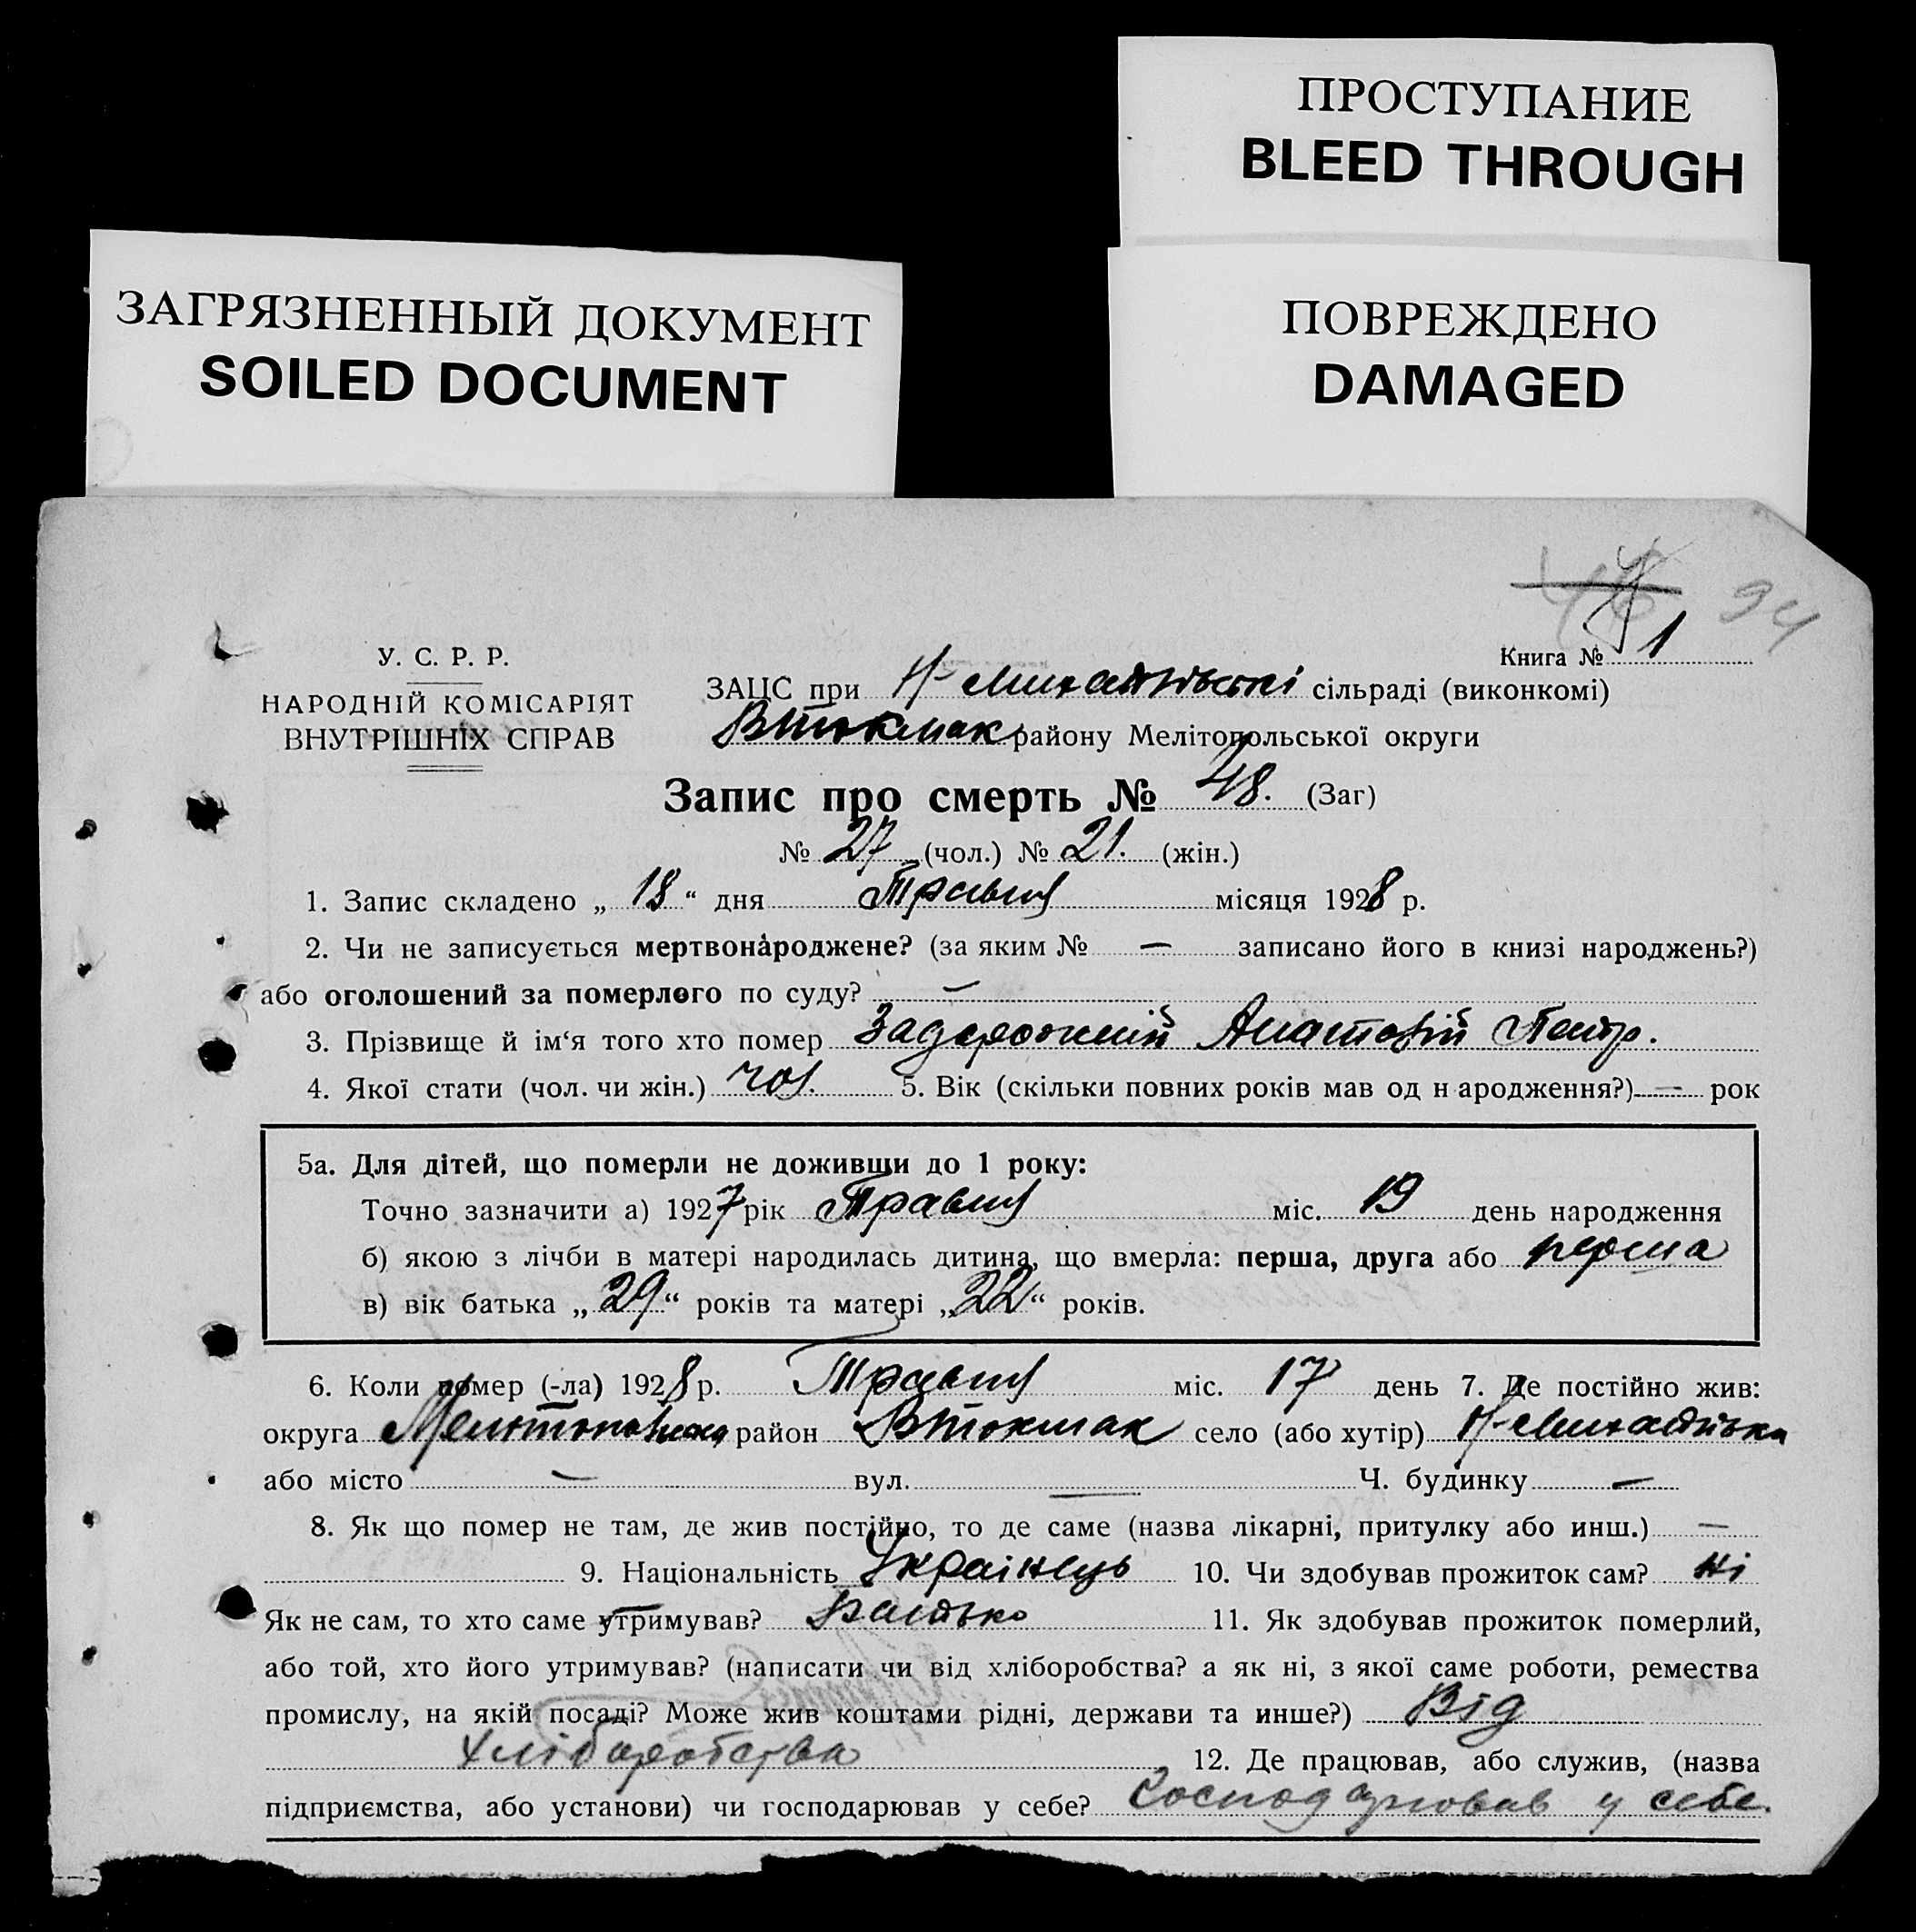 ПРОСТУПАНИЕ
BLEED THROUGH
ЗАГРЯЗНЕННЫЙ ДОКУМЕНТ
SOILED DOCUMENT
ПОВРЕЖДЕНО
DAMAGED
46 94
У. С. Р. Р.
НАРОДНІЙ КОМІСАРІЯТ
ВНУТРІШНІХ СПРАВ
Книга № 1
ЗАЦС при Н-Михайлівські сільраді (виконкомі)
ВТокмак району Мелітопольської округи
Запис про смерть № 48. (Заг)
№ 27 (чол.) № 21. (жін.)
1. Запис складено „ 18 “ дня Травня місяця 1928 р.
2. Чи не записується мертвонароджене? (за яким № — записано його в книзі народжень?)
або оголошений за померлого по суду? —
3. Прізвище й ім‘я того хто помер Задорожній Анатолій Петр.
4. Якої стати (чол. чи жін.) чол. 5. Вік (скільки повних років мав од н ародження?) — рок
5а. Для дітей, що померли не доживши до 1 року:
Точно зазначити а) 1927 рік Травня міс. 19 день народження
б) якою з лічби в матері народилась дитина, що вмерла: перша, друга або перша
в) вік батька „ 29 “ років та матері „ 22 “ років.
6. Коли помер (-ла) 1928 р. Травня міс. 17 день 7. Де постійно жив:
округа район ВТокмак село (або хутір) Н-Михайлівка
або місто — вул. — Ч. будинку —
8. Як що помер не там, де жив постійно, то де саме (назва лікарні, притулку або инш.) —
9. Національність Українець 10. Чи здобував прожиток сам? Ні
Як не сам, то хто саме утримував? Батько 11. Як здобував прожиток померлий,
або той, хто його утримував? (написати чи від хліборобства? а як ні, з якої саме роботи, ремества
промислу, на якій посаді? Може жив коштами рідні, держави та инше?) Від
хліборобства 12. Де працював, або служив, (назва
підприємства, або установи) чи господарював у себе? Господарював у себе.